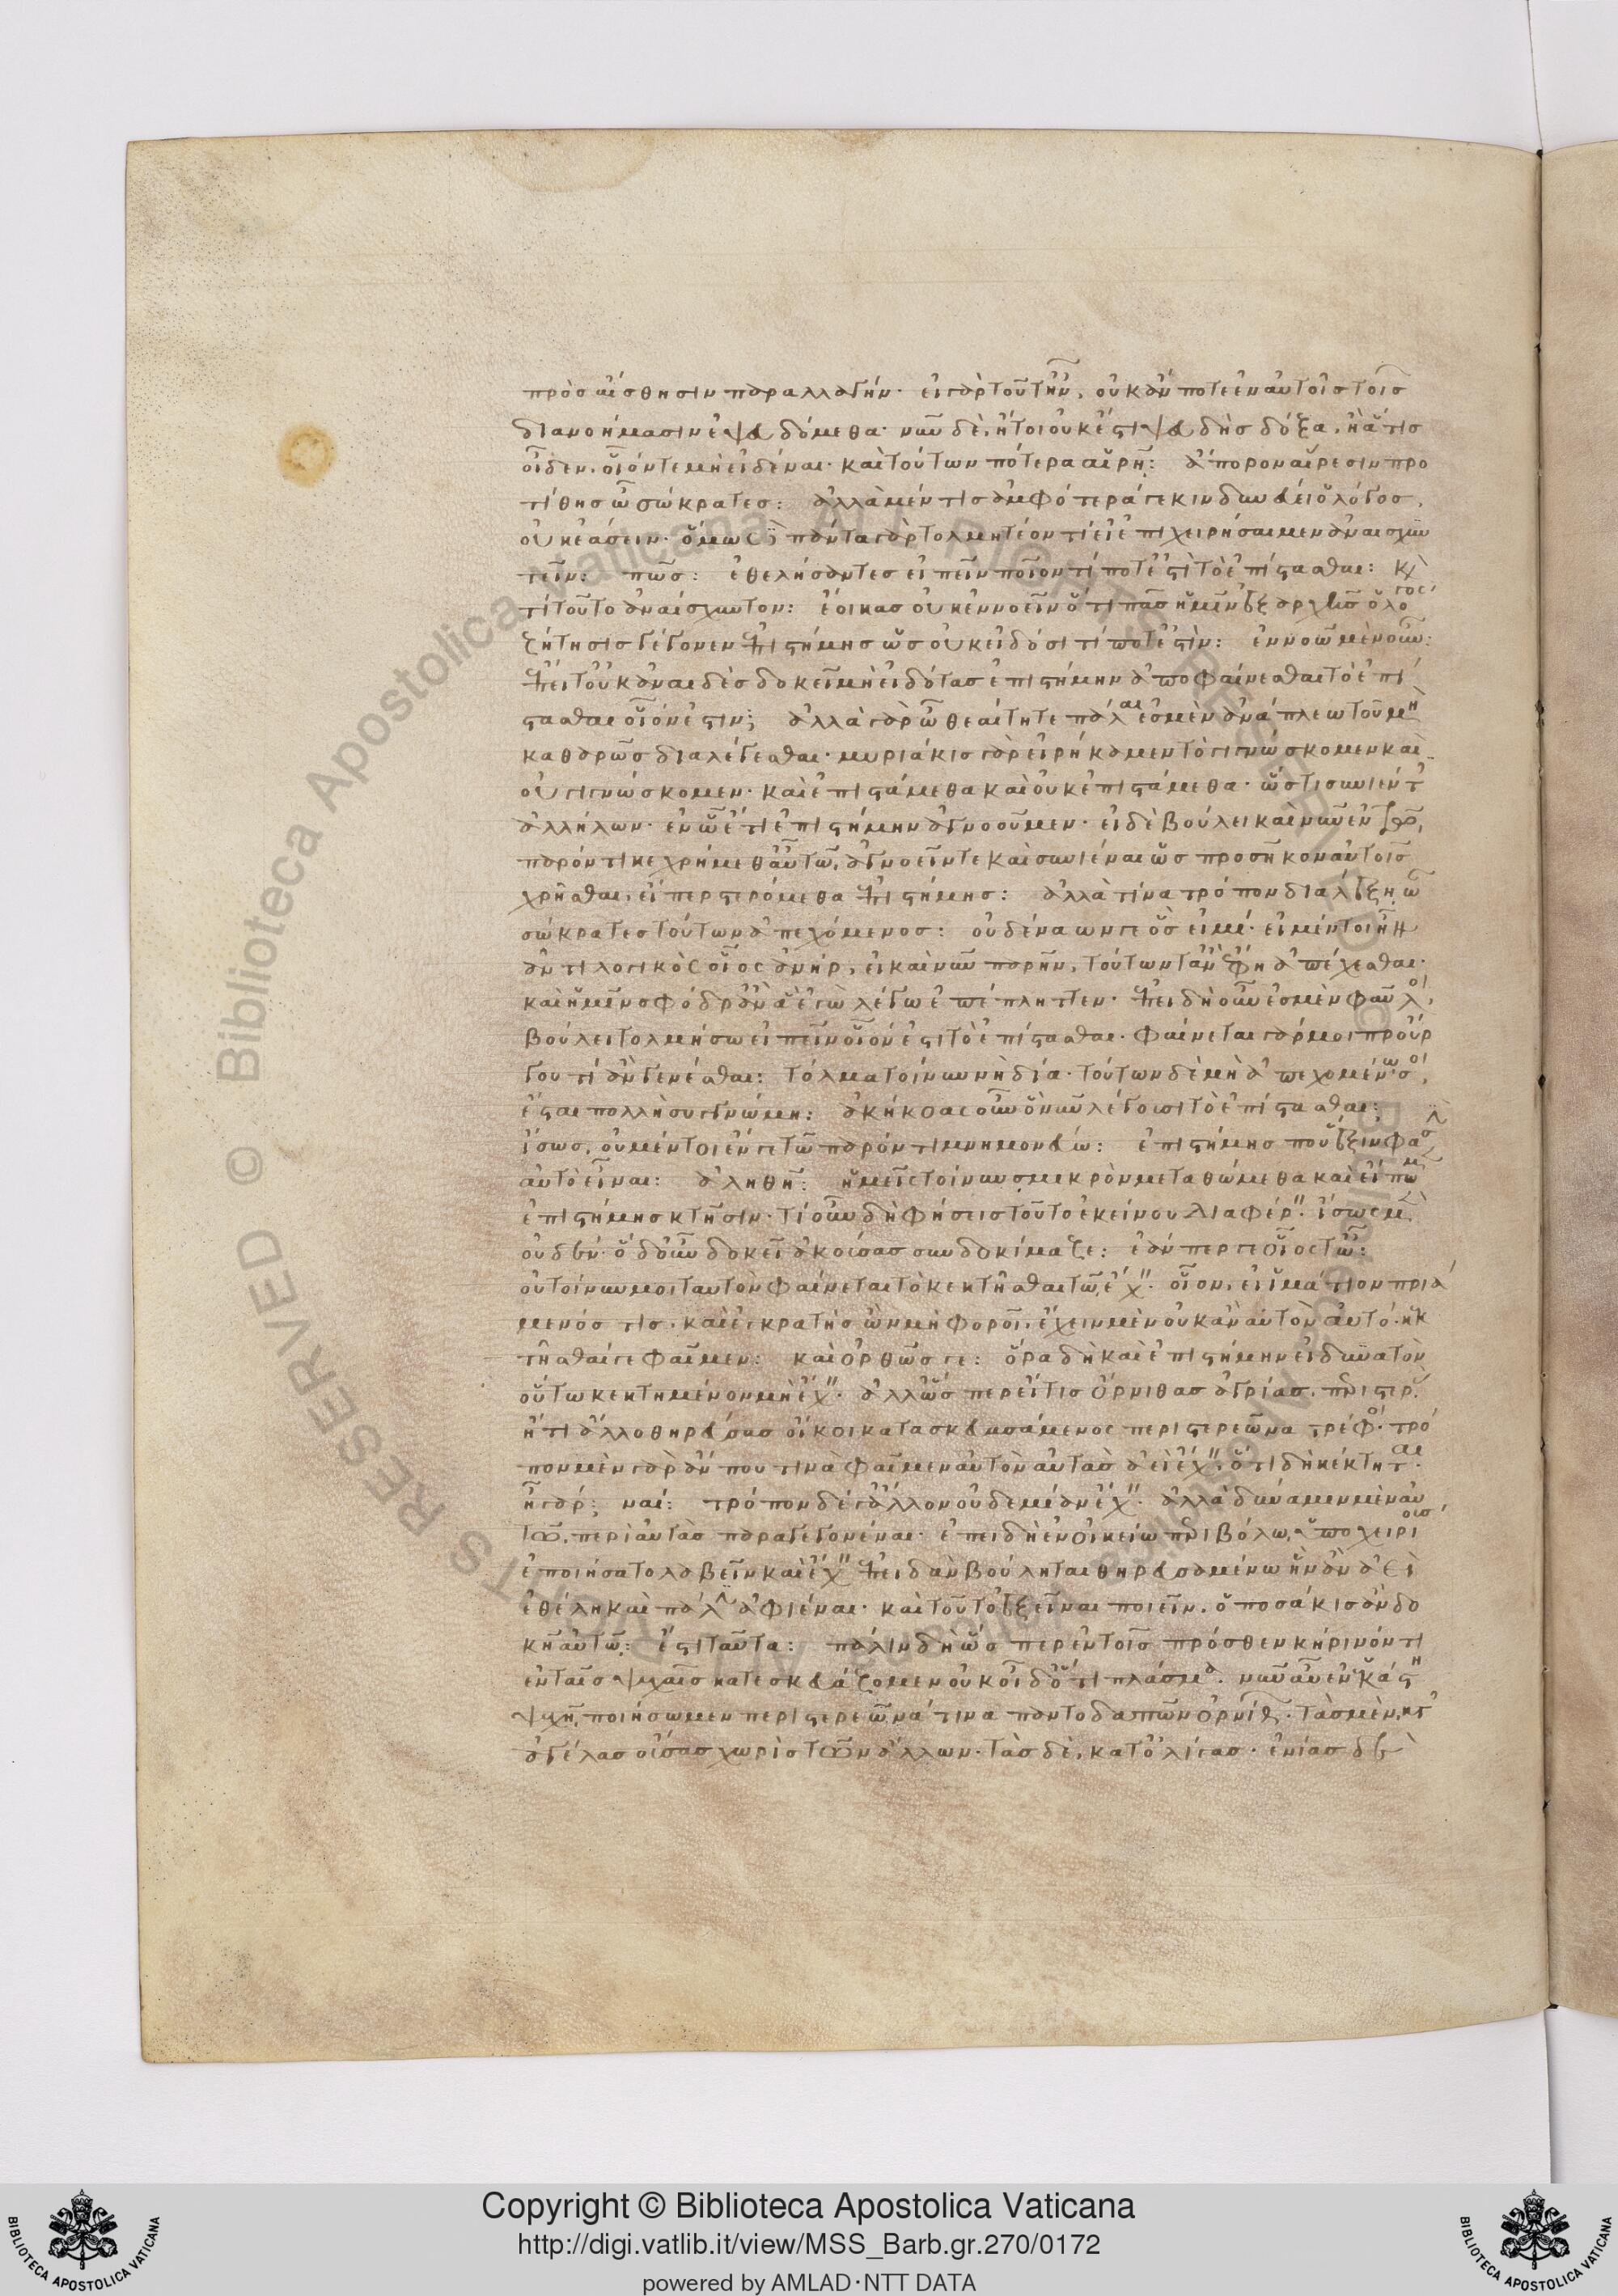 πρὸς αἴσθησιν παραλλαγήν· εἰ γὰρ τοῦτ ἦν, οὐκ ἄν ποτε ἐν αὐτοῖς τοῖς
διανοήμασιν ἐψευδόμεθα· νῦν δὲ, ἤτοι οὐκ ἔστι ψευδὴς δόξα, ἢ ἅ τις
οἶδεν, οἷόν τε μὴ εἰδέναι· καὶ τούτων πότερα αἱρῆ: ἄπορον αἵρεσιν προ
τίθης ὦ σώκρατες: ἀλλὰ μέντοι ἀμφότερά γε κινδυνεύει ὁ λόγος,
οὐκ ἐάσειν· ὅμως πάντα γὰρ τολμητέον τί εἰ ἐπιχειρήσαιμεν ἀναισχυν
τεῖν: πῶς: ἐθελήσαντες εἰπεῖν ποῖόν τί ποτ ἐστὶ τὸ ἐπίστασθαι: κ
τί τοῦτο ἀναίσχυντον: ἔοικας οὐκ ἐννοεῖν ὅτι πᾶς ἡμῖν ἐξ ἀρχῆς ὁ λόγος
ζήτησις γέγονεν ἐπιστήμης ὡς οὐκ εἰδόσι τί ποτ ἐστὶν: ἐννοῶ μὲν οὖν:
ἔπειτ οὐκ ἀναιδὲς δοκεῖ μὴ εἰδότας ἐπιστήμην ἀποφαίνεσθαι τὸ ἐπί
στασθαι οἷόν ἐστιν; ἀλλὰ γὰρ ὦ θεαίτητε πάλαι ἐσμὲν ἀνάπλεω τοῦ μὴ
καθαρῶς διαλέγεσθαι· μυριάκις γὰρ εἰρήκαμεν τὸ γιγνώσκομεν καὶ
οὐ γιγνώσκομεν· καὶ ἐπιστάμεθα καὶ οὐκ ἐπιστάμεθα· ὥς τι συνιέντ
ἀλλήλων· ἐν ᾧ ἔτι ἐπιστήμην ἀγνοοῦμεν· εἰ δὲ βούλει καὶ νῦν ἐν τῷ
παρόντι κεχρήμεθ αὖ τῶ, ἀγνοεῖν τε καὶ συνιέναι ὡς προσῆκον αὐτοῖς
χρῆσθαι, εἴπερ στερόμεθα ἐπιστήμης: ἀλλὰ τίνα τρόπον διαλέξη ὦ
σώκρατες τούτων ἀπεχόμενος: οὐδένα ὤν γε ὃς εἰμί· εἰ μέντοι ἦν
ἀντιλογικὸς οἷος ἀνὴρ, εἰ καὶ νῦν παρῆν, τούτων τ ἂν ἔφη ἀπέχεσθαι·
καὶ ἡμῖν σφόδρ ἂν ἃ ἐγὼ λέγω ἐπέπληττεν· ἐπειδὴ οὖν ἐσμὲν φαῦλοι,
βούλει τολμήσω εἰπεῖν οἷόν ἐστι τὸ ἐπίστασθαι· φαίνεται γάρ μοι προὔρ
γου τί ἂν γενέσθαι: τόλμα τοίνυν νὴ δία· τούτων δὲ μὴ ἀπεχομένω σοι,
ἔσται πολλὴ συγγνώμη: ἀκήκοας οὖν ὃ νῦν λέγουσι τὸ ἐπίστασθαι;
ἴσως, οὐ μέντοι ἔν γε τῶ παρόντι μνημονεύω: ἐπιστήμης που ἕξιν φασ
αὐτὸ εἶναι: ἀληθῆ: ἡμεῖς τοίνυν σμικρὸν μεταθώμεθα καὶ εἴπωμ
ἐπιστήμης κτῆσιν· τί οὖν δὴ φήσεις τοῦτο ἐκείνου διαφέρ· ἴσως μ
οὐδὲν· ὃ δ οὖν δοκεῖ ἀκούσας συνδοκίμαζε: ἐάν πέρ γε οἷός τ ὦ:
οὐ τοίνυν μοι ταυτὸν φαίνεται τὸ κεκτῆσθαι τῶ ἔχ· οἷον, εἰ ἱμάτιον πριά
μενός τις, καὶ ἐγκρατὴς ὢν μὴ φοροῖ, ἔχειν μὲν οὐκ ἂν αὐτὸν αὐτό· κεκ
τῆσθαί γε φαῖμεν: καὶ ὀρθῶς γε: ὅρα δὴ καὶ ἐπιστήμην εἰ δυνατὸν
οὕτω κεκτημένον μὴ ἔχ· ἀλλ ὥσπερ εἴ τις ὄρνιθας ἀγρίας, περιστερ
ἤ τι ἄλλο θηρεύσας οἴκοι κατασκευασάμενος περιστερεῶνα τρέφοι· τρό
πον μὲν γὰρ ἄν πού τινα φαῖμεν αὐτὸν αὐτὰς ἀεὶ ἔχ, ὅτι δὴ κέκτηται·
ἦ γάρ; ναί: τρόπον δέ γ ἄλλον οὐδεμίαν ἔχ· ἀλλὰ δύναμιν μὲν αὐ
τῶ, περὶ αὐτὰς παραγεγονέναι· ἐπειδὴ ἐν οἰκείω περιβόλω, ὑποχειρίους
ἐποιήσατο λαβεῖν καὶ ἔχ ἐπειδὰν βούληται θηρευσαμένω ἣν ἂν ἀεὶ
ἐθέλη καὶ πάλιν ἀφιέναι· καὶ τοῦτο ἐξεῖναι ποιεῖν, ὁποσάκις ἂν δο
κῆ αὐτῶ: ἔστι ταῦτα: πάλιν δὴ ὥσπερ ἐν τοῖς πρόσθεν κήρινόν τι
ἐν ταῖς ψυχαῖς κατεσκευάζομεν οὐκ οἶδ ὅτι πλάσμα· νῦν αὖ ἐν ἑκάστη
ψυχῆ, ποιήσωμεν περιστερεῶνά τινα παντοδαπῶν ὀρνίθων· τὰς μὲν, κατ
ἀγέλας οὔσας χωρὶς τῶν ἄλλων· τὰς δὲ, κατ ὀλίγας· ἐνίας δὲ
Copyright © Biblioteca Apostolica Vaticana
http://digi.vatlib.it/view/MSS_Barb.gr.270/0172
powered by AMLAD·NTT DATA